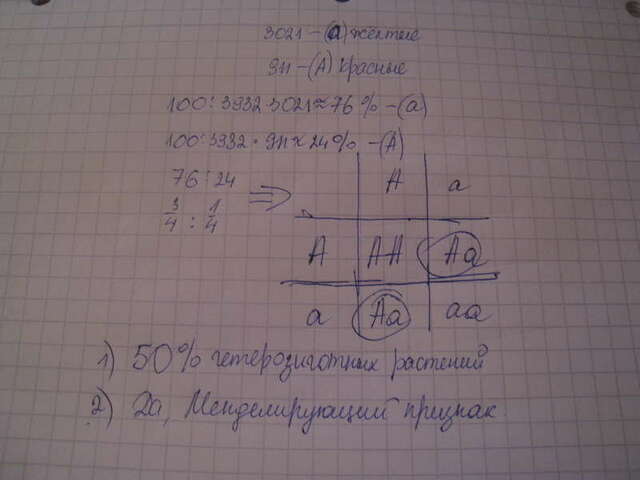 3021 – (а) жёлтые
911 – (А) красные
100 : 3932 · 3021 ≈ 76 % – (а)
100 : 3932 · 911 ≈ 24 % – (А)
76 : 24
3/4 : 1/4 ⇒
А а
А АА Аа
а Аа аа
1) 50% гетерозиготных растений
2) Да, Менделирующий признак